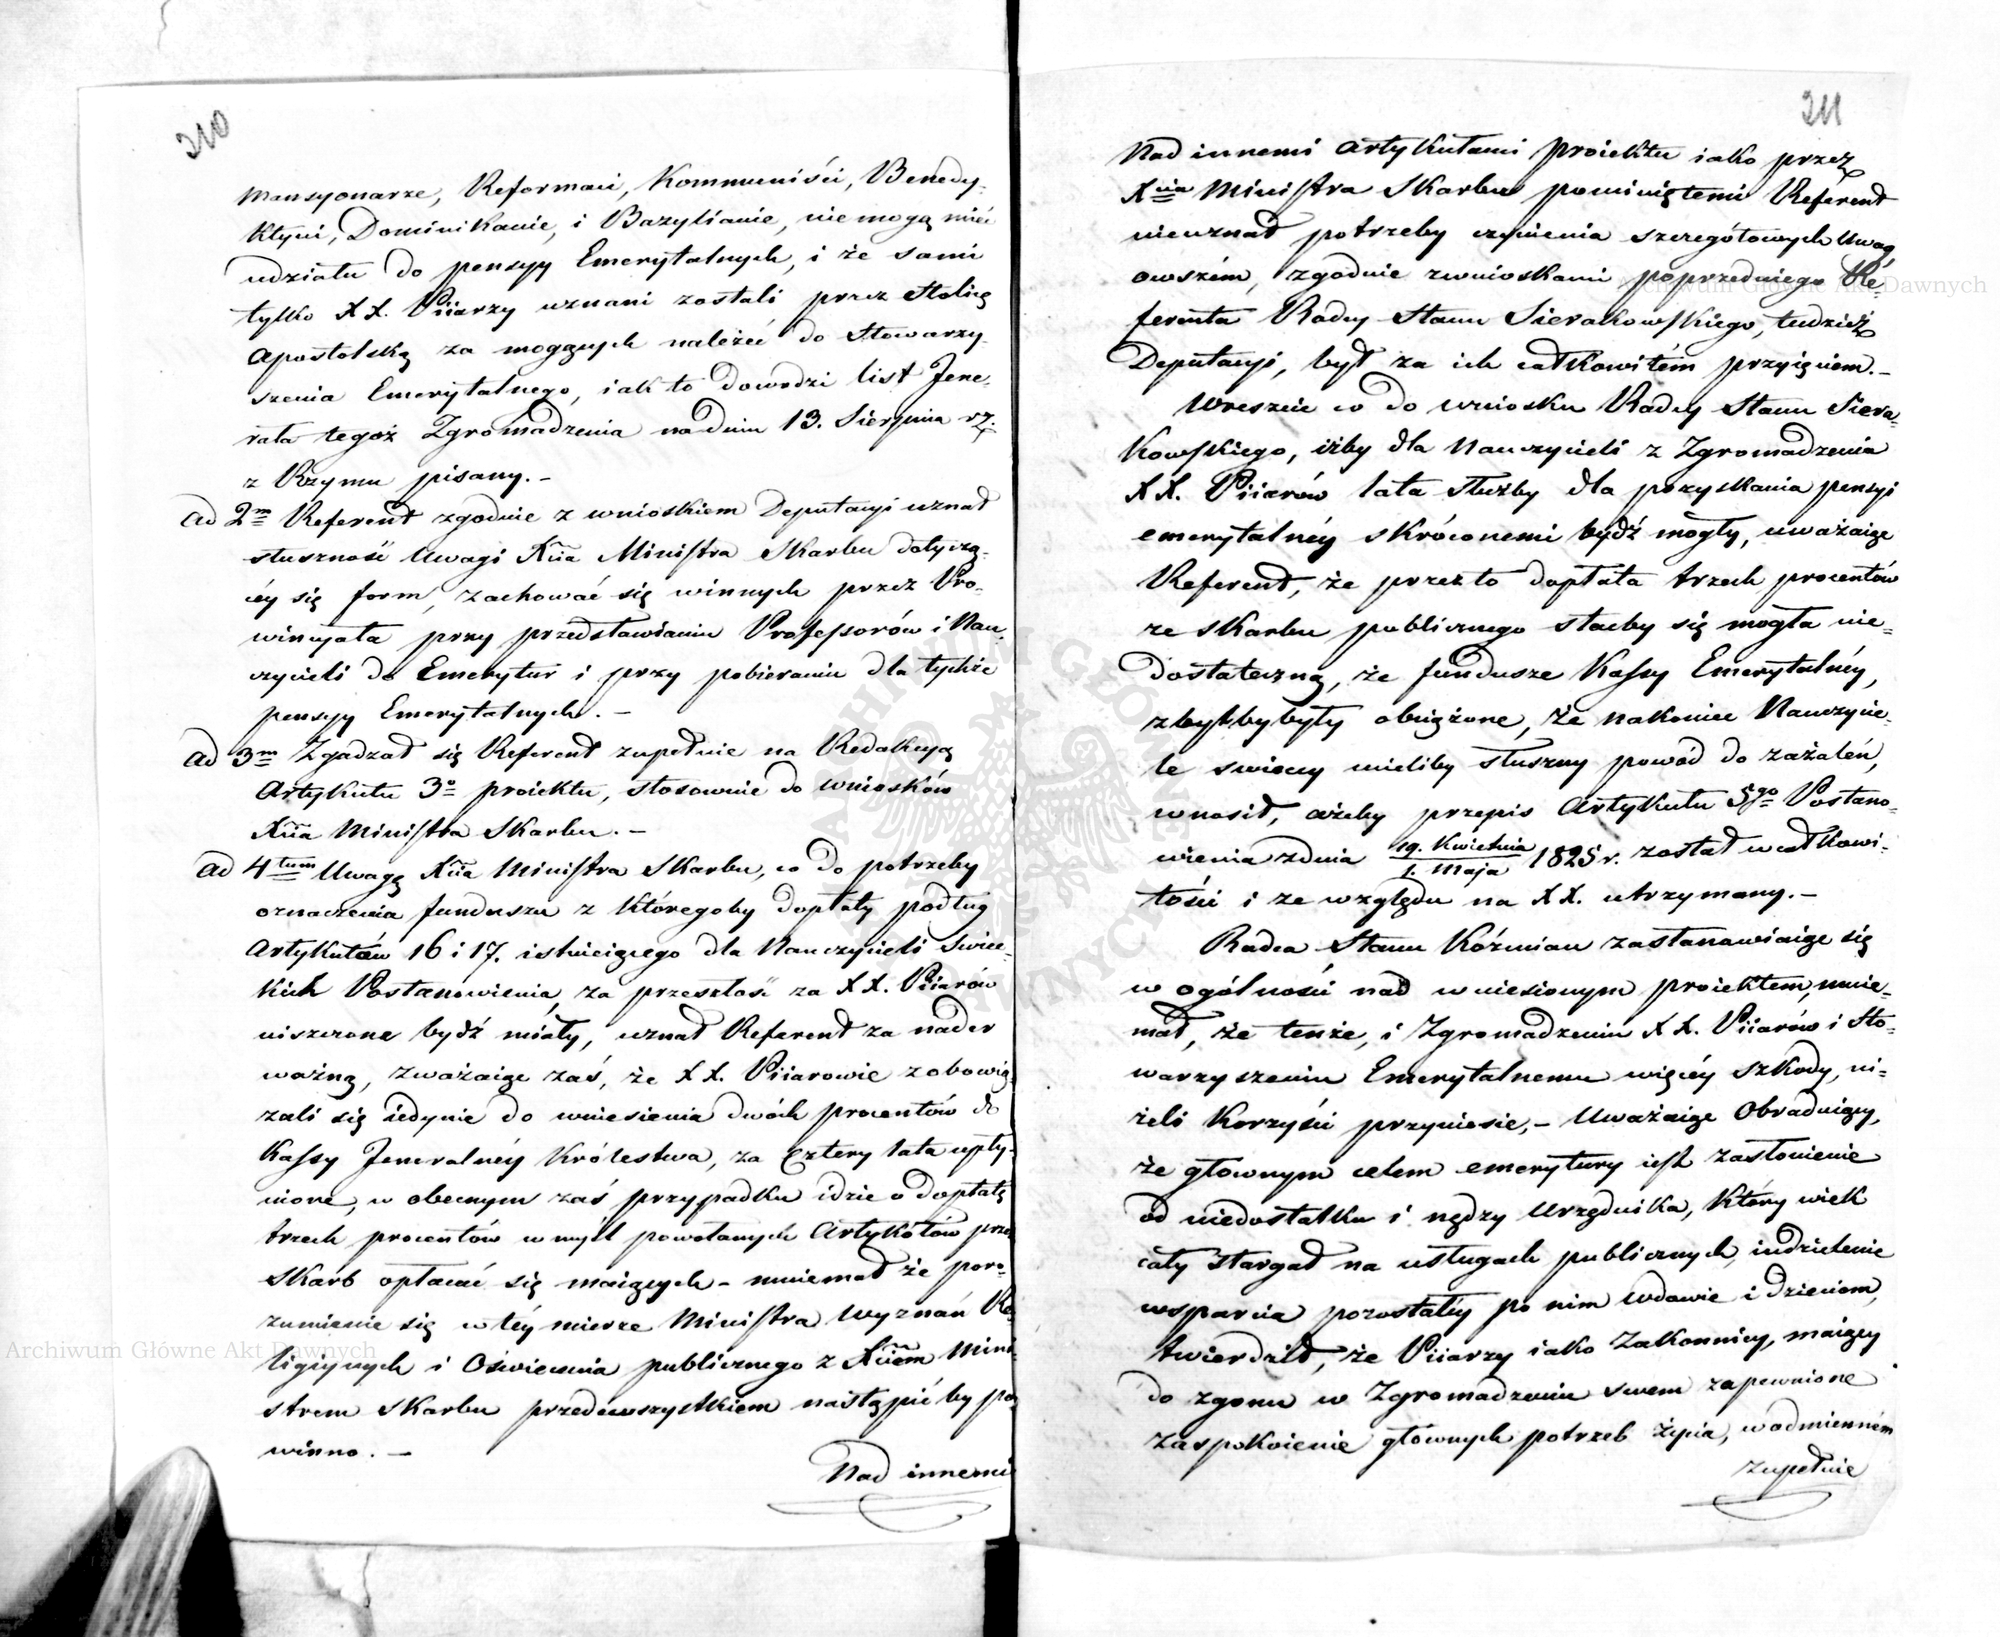 210
Mansyonarze, Reformaci, Kommuniści, Benedy-
ktyni, Dominikanie, i Bazylianie, nie mogą mieć
udziału do pensyy Emerytalnych, i że sami
tylko XX. Piiarzy uznani zostali przez Stolicę
Apostolską za mogących należeć do Stowarzy-
szenia Emerytalnego, iak to dowodzi list Jene-
rała tegoż Zgromadzenia na dniu 13. Sierpnia rz.
z Rzymu pisany. –
Ad 2m Referent zgodnie z wnioskiem Deputacyi uznał
słuszność Uwagi Xcia Ministra Skarbu dotyczą-
céy się form, zachować się winnych przez Pro-
wincyała przy przedstawianiu Professorów i Nau-
czycieli do Emerytur i przy pobieraniu dla tychże
pensyy Emerytalnych. –
Ad 3m Zgadzał się Referent zupełnie na Redakcyą
Artykułu 3o proiektu, stosownie do wniosków
Xcia Ministra Skarbu. –
Ad 4tum Uwagę Xcia Ministra Skarbu, co do potrzeby
oznaczenia funduszu z któregoby dopłaty podług
Artykułów 16 i 17. istnieiącego dla Nauczycieli Świec-
kich Postanowienia, za przeszłość za XX. Piiarów
uiszczone bydź miały, uznał Referent za nader
ważną, zważaiąc zaś, że XX. Piiarowie zobowią-
zali się iedynie do wniesienia dwóch procentów do
Kassy Jeneralnéy Królestwa, za cztery lata upły-
nione, w obecnym zaś przypadku idzie o dopłatę
trzech procentów w myśl powołanych Artykółów przez
Skarb opłacać się maiących – mniemał że poro-
zumienie się w téy mierze Ministra Wyznań Re-
ligiynych i Oświecenia publicznego z Xciem Mini-
strem Skarbu przedewszystkiem nastąpić by po-
winno. –
Nad innemi
211
Nad innemi Artykułami proiektu iako przez
Xcia Ministra Skarbu pominiętemi Referent
nieuznał potrzeby czynienia szczegółowych Uwag
owszém, zgodnie z wnioskami poprzedniego Re-
ferenta Radcy Stanu Sierakowskiego, tudzież
Deputacyi, był za ich całkowitém przyięciem. –
Wreszcie co do wniosku Radcy Stanu Siera-
kowskiego, iżby dla Nauczycieli z Zgromadzenia
XX. Piiarów lata służby dla pozyskania pensyi
emerytalnéy skróconemi bydź mogły, uważaiąc
Referent, że przez to dopłata trzech procentów
ze Skarbu publicznego staćby się mogła nie-
dostateczną, że fundusze Kassy Emerytalnéy,
zbytby były obciążone, że nakoniec Nauczycie-
le świeccy mieliby słuszny powód do zażaleń,
wnosił, ażeby przepis Artykułu 5go Postano-
wienia z dnia 19. Kwietnia / 1. Maja 1825 r. został w całkowi-
tości i ze względu na XX. utrzymany. –
Radca Stanu Koźmian zastanawiaiąc się
w ogólności nad wniesionym proiektem, mnie-
mał, że tenże, i Zgromadzeniu XX. Piiarów i Sto-
warzyszeniu Emerytalnemu więcéy szkody, ni-
żeli korzyści przyniesie, – Uważaiąc Obraduiący,
że głownym celem emerytury iest zasłonienie
od niedostatku i nędzy Urzędnika, który wiek
cały stargał na usługach publicznych, iudzielenie
wsparcia pozostałéy po nim wdowie i dzieciom,
twierdził, że Piiarzy iako Zakonnicy, maiący
do zgonu w Zgromadzeniu swem zapewnione
zaspokoienie głownych potrzeb życia, w odmienném
zupełnie
Archiwum Główne Akt Dawnych
Archiwum Główne Akt Dawnych
ARCHIWUM GŁÓWNE AKT DAWNYCH